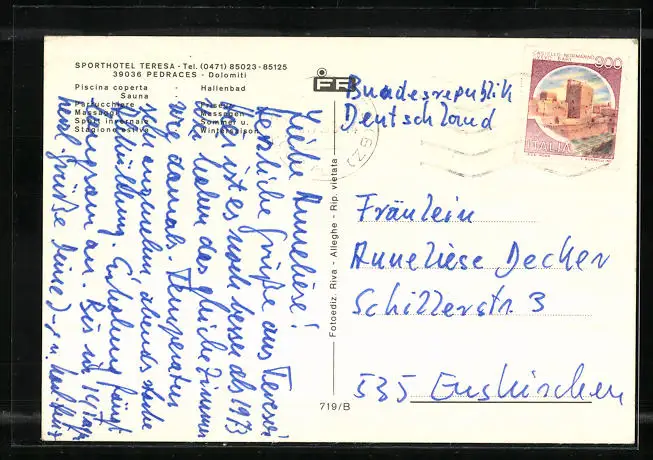 SPORTHOTEL TERESA - Tel. (0471) 85023-85125
39036 PEDRACES - Dolomiti
Piscina coperta - Hallenbad
Sauna
Parrucchiere - Friseur
Massaggi - Massagen
Sport invernale - Sommer u.
Stagione estiva - Wintersaison
FR
Liebe Anneliese!
Herzliche Grüße aus
ist es noch besser als 1973
haben das gleiche Zimmer
wie damals. Temperatur
sehr angenehm, abends starke
Abkühlung. Erholung fängt
langsam an. Bis
herzl. Grüße Deine
Fotoediz. Riva - Alleghe - Rip. vietata
719/B
Bundesrepublik
Deutschland
CASTELLO NORMANNO SVEVO BARI
900
ITALIA
Fräulein
Anneliese Decker
Schillerstr. 3
535 Euskirchen